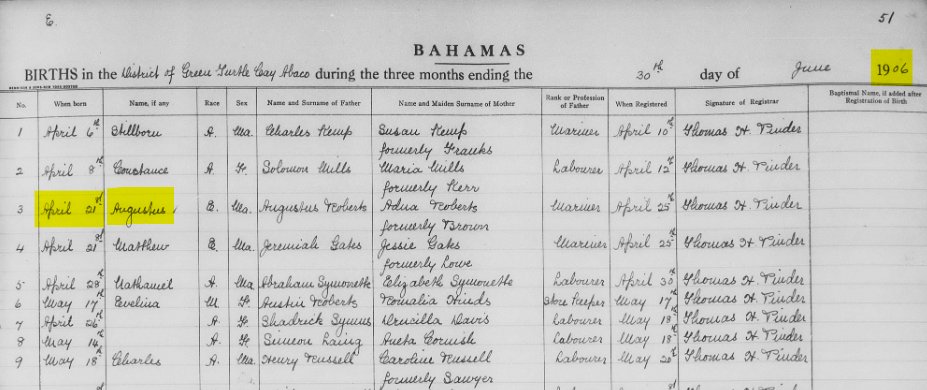 E. 51
BAHAMAS
BIRTHS in the District of Green Turtle Cay Abaco during the three months ending the 30th day of June 1906
No. When born Name, if any Race Sex Name and Surname of Father Name and Maiden Surname of Mother Rank or Profession of Father When Registered Signature of Registrar Baptismal Name, if added after Registration of Birth
1 April 6th Stillborn A. Ma. Charles Kemp Susan Kemp Mariner April 10th Thomas H. Pinder
formerly Franks
2 April 8th Constance A. F. Solomon Mills Maria Mills Labourer April 12th Thomas H. Pinder
formerly Kerr
3 April 21st Augustus E. Ma. Augustus Roberts Adna Roberts Mariner April 25th Thomas H. Pinder
formerly Brown
4 April 21st Matthew E. Ma. Jeremiah Gates Jessie Gates Mariner April 25th Thomas H. Pinder
formerly Lowe
5 April 28th Nathaniel A. Ma. Abraham Symonette Elizabeth Symonette Labourer April 30th Thomas H. Pinder
6 May 17th Evelina M. F. Austin Roberts Romalia Hinds Store Keeper May 17th Thomas H. Pinder
7 April 26th A. F. Shadrick Symms Drucilla Davis Labourer May 18th Thomas H. Pinder
8 May 14th A. F. Simeon Laing Cornish Labourer May 18th Thomas H. Pinder
9 May 18th Charles A. Ma. Henry Russell Caroline Russell Labourer May 20th Thomas H. Pinder
formerly Sawyer